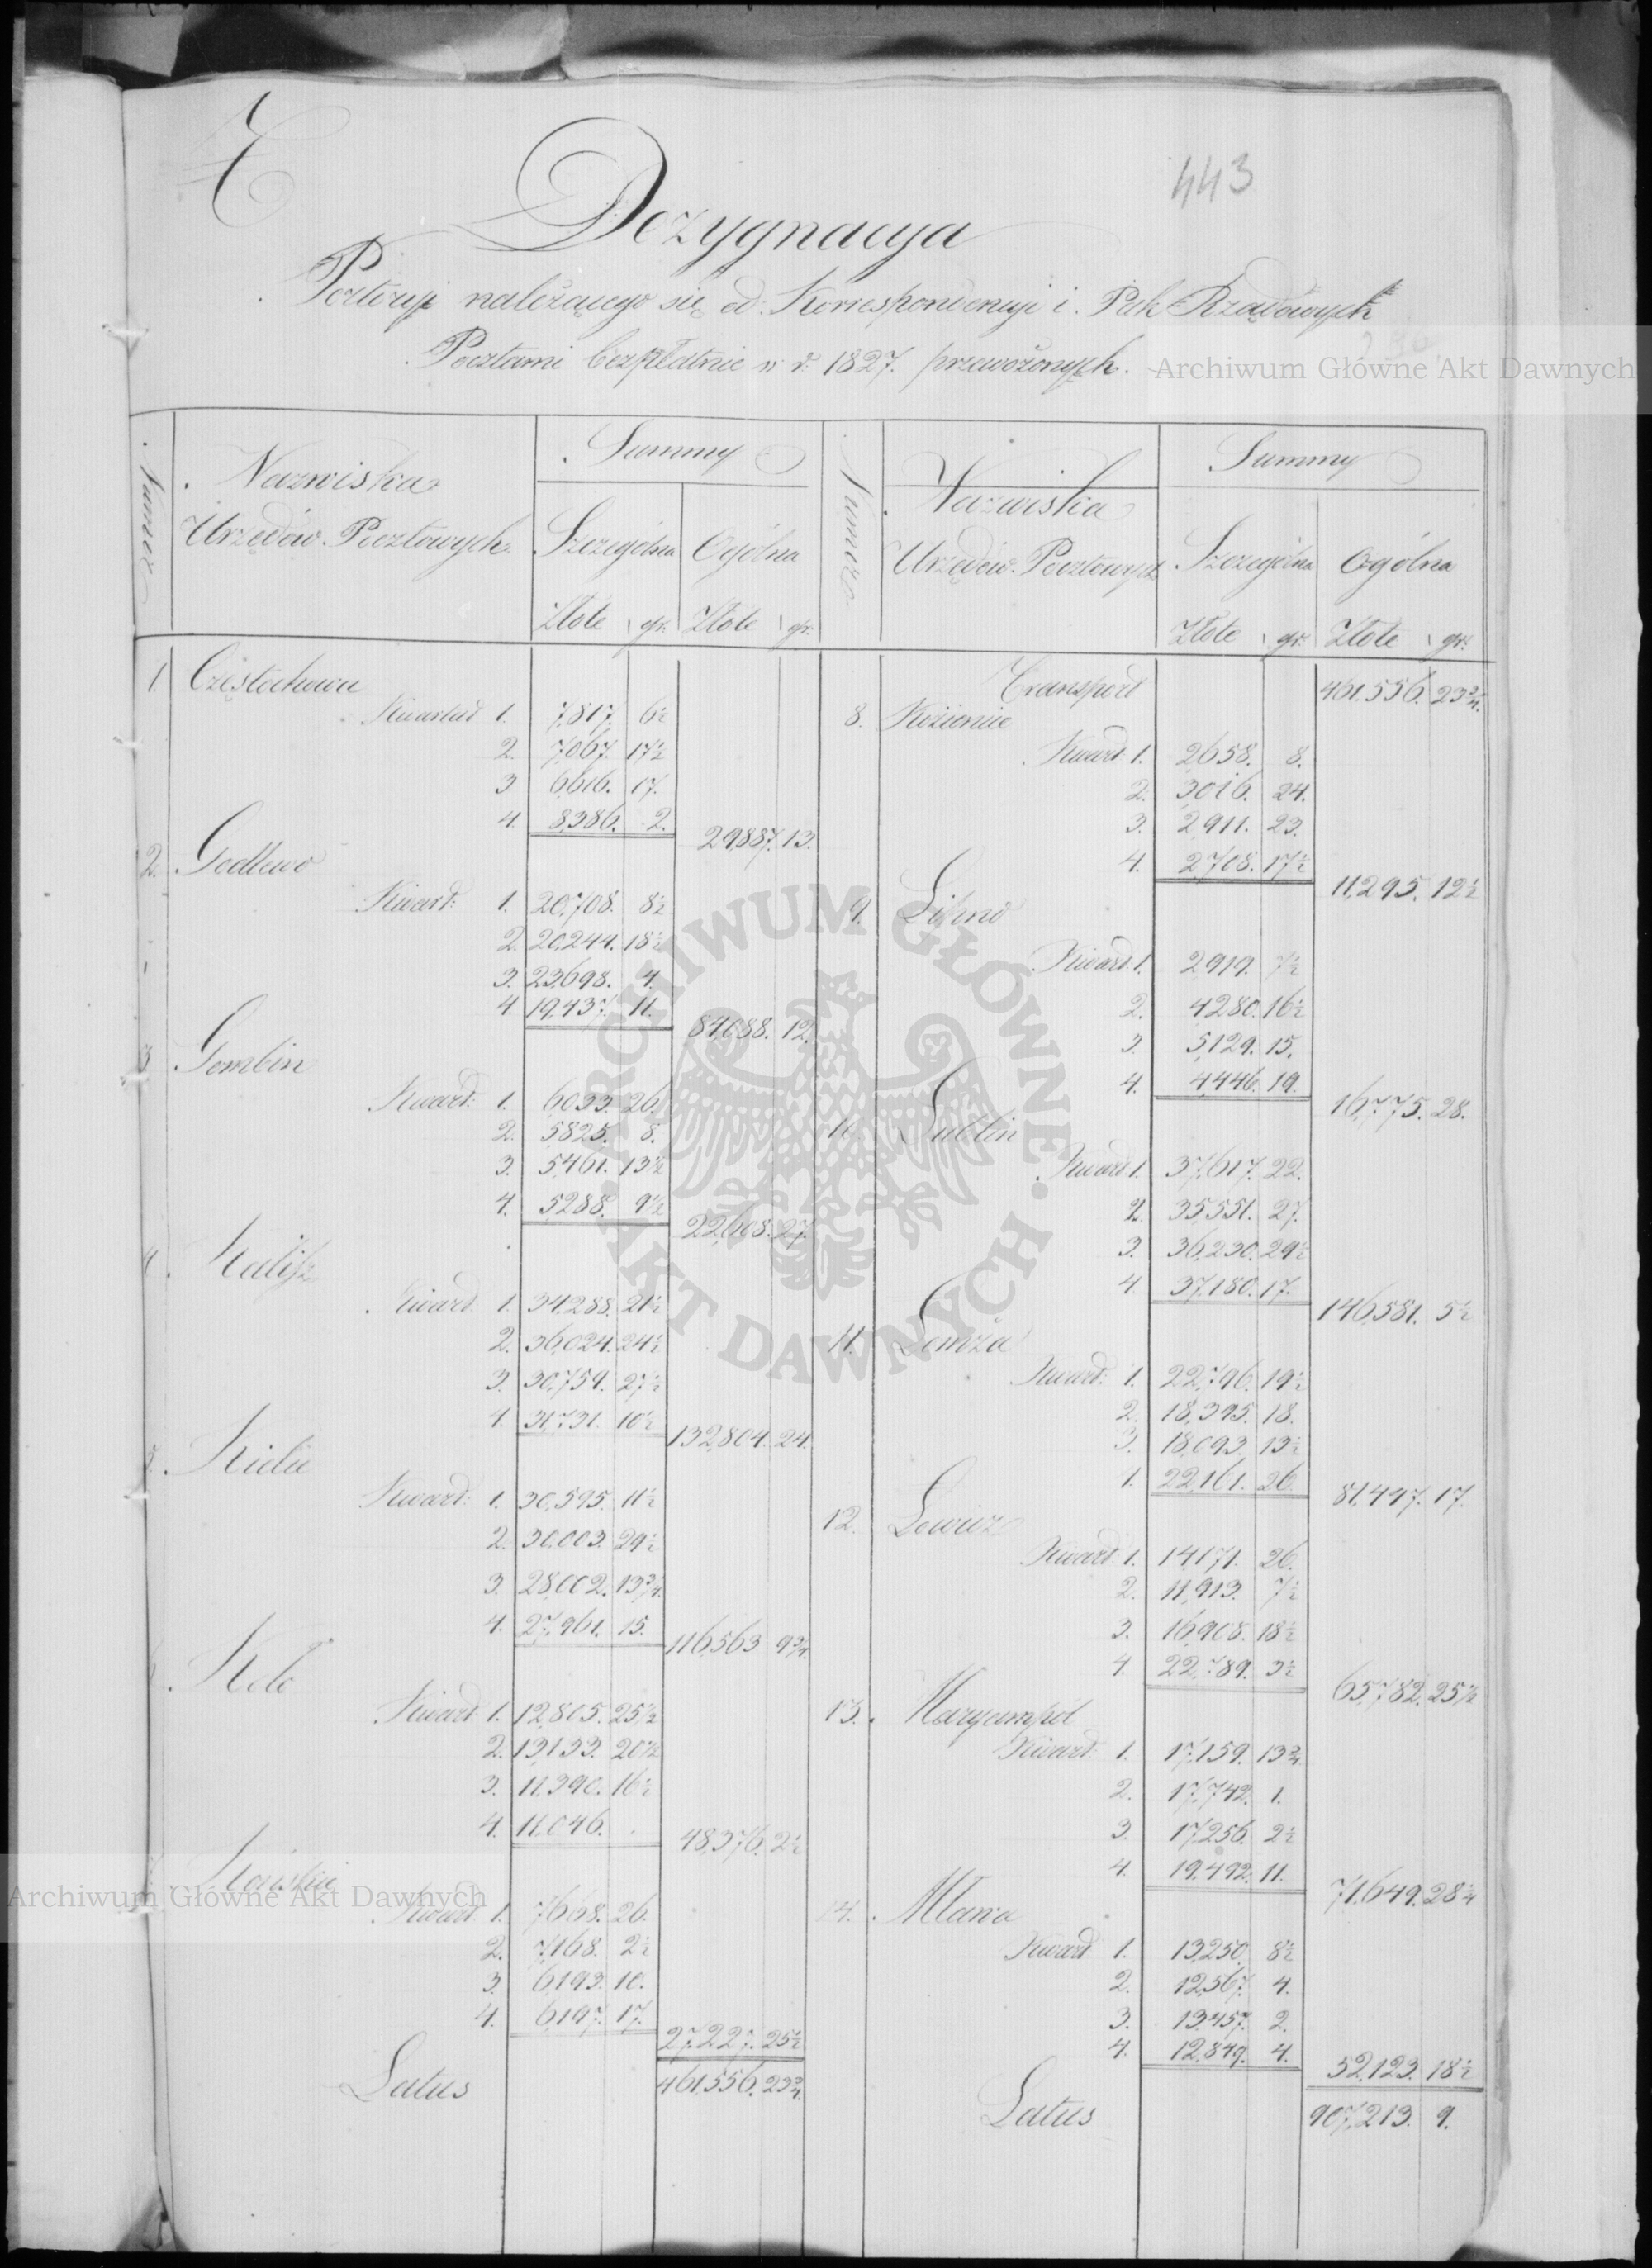 E
443
Dezygnacya
Portoryi należącego się od Korrespondencyi i Pak Rządowych
Pocztami bezpłatnie w r. 1827. przewożonych.
Archiwum Główne Akt Dawnych
Numer
Nazwiska
Urzędów Pocztowych
Summy
Szczególna
Ogólna
Złote gr. Złote gr.
1. Częstochowa
Kwartał 1. 7,817. 6½
2. 7,067. 17½
3 6,616. 17.
4. 8,386. 2.
29,887. 13.
2. Godlewo
Kwart: 1. 20,708. 8½
2. 20,244. 18½
3. 23,698. 4.
4. 19,437. 11.
84,088. 12.
3 Gombin
Kwart: 1. 6033. 26.
2. 5,825. 8.
3. 5,461. 13½
4. 5,288. 9½
22,608. 27.
4. Kalisz
Kwart. 1. 34,288. 21½
2. 36,024. 24½
3. 30,759. 27½
4. 31,731. 10½
132,804. 24.
5. Kielce
Kwart: 1. 30,595. 11½
2. 30,003. 29½
3. 28,002. 13¾
4. 27,961. 15.
116,563 9¾
Koło
Kwart. 1. 12,805. 25½
2. 13,133. 20½
3. 11,390. 16½
4. 11,046. .
48,376. 2½
Końskie
Archiwum Główne Akt Dawnych
Kwart 1. 7,668. 26.
2. 7,168. 2½
3. 6,193. 10.
4. 6,197. 17.
27,227. 25½
Latus 461,556. 23¾
Numer
Nazwiska
Urzędów Pocztowych
Summy
Szczególna
Ogólna
Złote gr. Złote gr.
Transport 461,556. 23¾
8. Kozienice
Kwart. 1. 2,658. 8.
2. 3,016. 24.
3. 2,911. 23.
4. 2,708. 17½
11,295. 12½
9. Lipno
Kwart. 1. 2,919. 7½
2. 4,280. 16½
3. 5,129. 15.
4. 4,446. 19.
16,775. 28.
10. Lublin
Kwart. 1. 37,617. 22.
2. 35,551. 27.
3. 36,230. 29½
4 37,180. 17.
146,581. 5½
11. Łomża
Kwart: 1. 22,796. 19½
2. 18,395. 18.
3. 18,093. 13½
22,161. 26
81,447. 17.
12. Łowicz
Kwart. 1. 14,171. 26.
2. 11,913. 7½
3. 16,908. 18½
4. 22,789. 3½
65,782. 25½
13. Maryampol
Kwart: 1. 17,159. 13¾
2. 17,742. 1.
3. 17,256. 2½
4. 19,492. 11.
71,649. 28¼
14. Mława
Kwart 1. 13,250. 8½
2. 12,567. 4.
3. 13,457. 2.
4. 12,849. 4.
52,123. 18½
Latus 907,213. 9.
ARCHIWUM GŁÓWNE AKT DAWNYCH